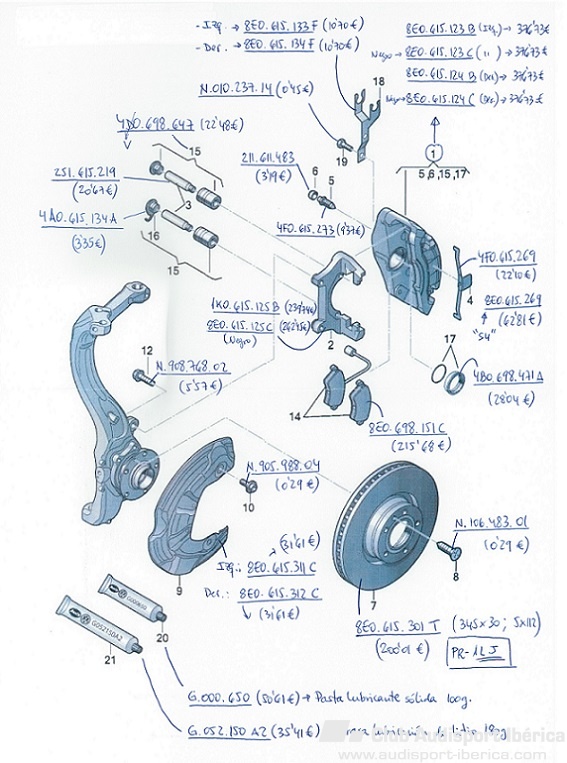 - Izq. → 8E0.615.133 F (10'70€)
- Der. → 8E0.615.134 F (10'70€)
8E0.615.123 B (Izq.) → 376'73€
Negro → 8E0.615.123 C ( " ) → 376'73€
8E0.615.124 B (Der.) → 376'73€
Negro → 8E0.615.124 C (Der.) → 376'73€
18
N.010.237.14 (0'45€)
19
1
5,6,15,17
4D0.698.647 (22'48€)
15
251.615.219
(20'67€)
3
4A0.615.134 A
(3'35€)
16
15
211.611.483
(3'19€)
6
5
4F0.615.273 (9'37€)
4F0.615.269
(22'10€)
4
8E0.615.269
(62'81€)
"S4"
1K0.615.125 B
8E0.615.125 C
(Negro)
2
12
N.908.768.02
(5'57€)
17
4B0.698.471 A
(28'04€)
14
8E0.698.151 C
(215'68€)
N.905.988.04
(0'29€)
10
N.106.483.01
(0'29€)
8
9
(31'61€)
Izq.: 8E0.615.311 C
Der.: 8E0.615.312 C
(31'61€)
7
8E0.615.301 T (345x30; 5x112)
(200'01€)
PR-1LJ
G000650
20
G052150A2
21
G.000.650 (50'61€) → Pasta lubricante sólida 100g.
G.052.150 A2 (35'41€)
Club Audisport-Ibérica
www.audisport-iberica.com